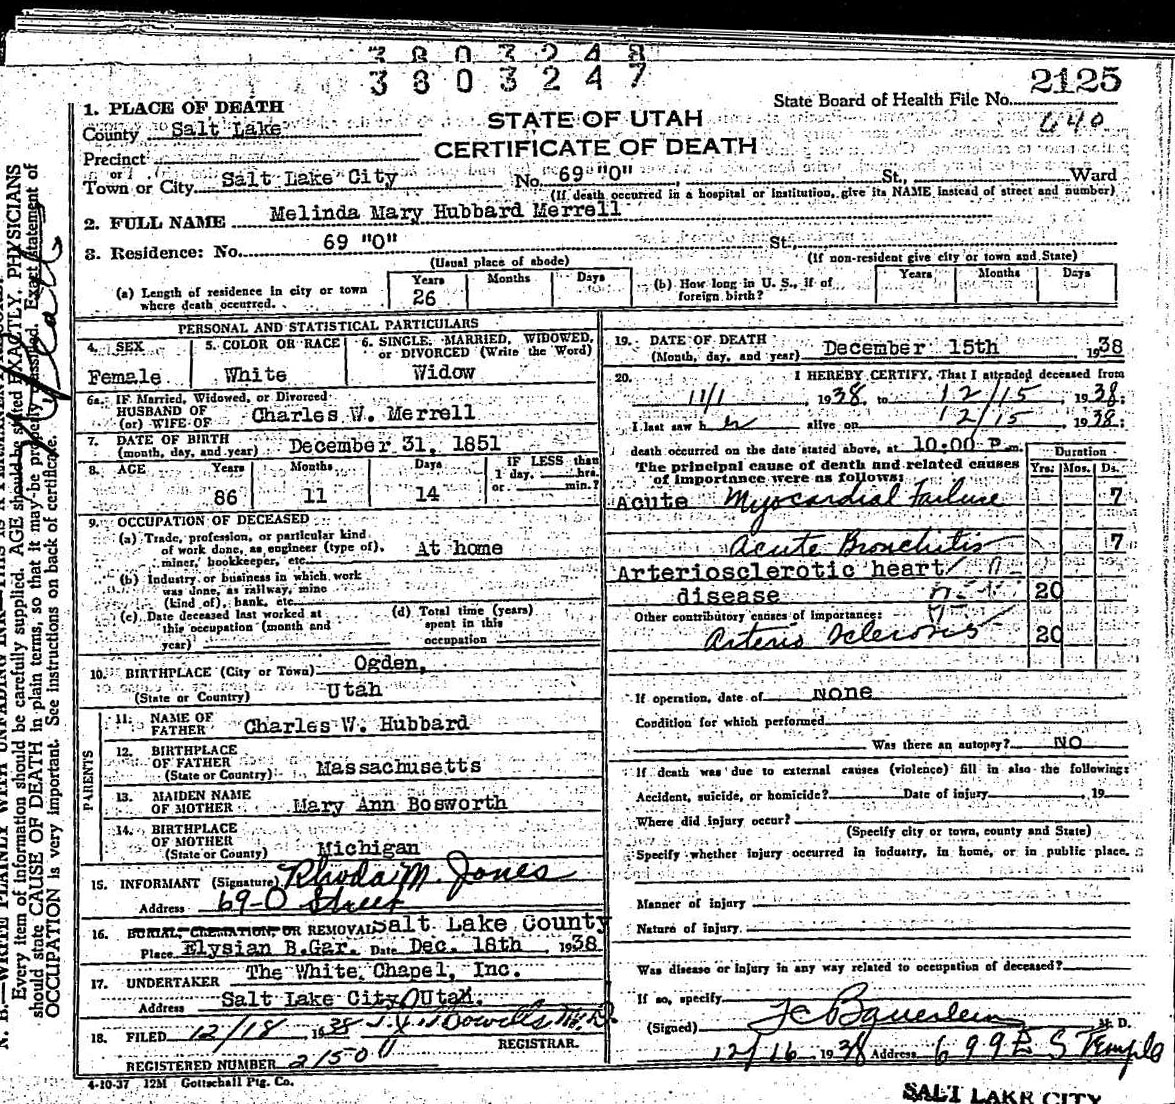 3803248
3803247
2125
State Board of Health File No.
640
STATE OF UTAH
CERTIFICATE OF DEATH
1. PLACE OF DEATH
County Salt Lake
Precinct
or
Town or City Salt Lake City No. 69 "O" St., Ward
(If death occurred in a hospital or institution, give its NAME instead of street and number)
2. FULL NAME Melinda Mary Hubbard Merrell
3. Residence: No. 69 "O" St.
(Usual place of abode) (If non-resident give city or town and State)
(a) Length of residence in city or town where death occurred. Years 26 Months Days
(b) How long in U. S., if of foreign birth? Years Months Days
PERSONAL AND STATISTICAL PARTICULARS
4. SEX Female
5. COLOR OR RACE White
6. SINGLE, MARRIED, WIDOWED, or DIVORCED (Write the Word) Widow
6a. If Married, Widowed, or Divorced
HUSBAND OF
(or) WIFE OF Charles W. Merrell
7. DATE OF BIRTH
(month, day, and year) December 31, 1851
8. AGE Years 86 Months 11 Days 14
IF LESS than 1 day, hrs. or min.?
9. OCCUPATION OF DECEASED
(a) Trade, profession, or particular kind
of work done, as engineer (type of),
miner, bookkeeper, etc. At home
(b) Industry or business in which work
was done, as railway, mine
(kind of), bank, etc.
(c) Date deceased last worked at
this occupation (month and
year)
(d) Total time (years)
spent in this
occupation
10. BIRTHPLACE (City or Town) Ogden,
(State or Country) Utah
PARENTS
11. NAME OF
FATHER Charles W. Hubbard
12. BIRTHPLACE
OF FATHER
(State or Country) Massachusetts
13. MAIDEN NAME
OF MOTHER Mary Ann Bosworth
14. BIRTHPLACE
OF MOTHER
(State or Country) Michigan
15. INFORMANT (Signature) Rhoda M. Jones
Address 69-O Street
16. BURIAL, CREMATION, OR REMOVAL Salt Lake County
Place Elysian B.Gar. Date Dec. 18th 1938
17. UNDERTAKER The White Chapel, Inc.
Address Salt Lake City, Utah.
18. FILED 12/18 1938
REGISTRAR.
REGISTERED NUMBER 2150
4-10-37 12M Gottschall Ptg. Co.
19. DATE OF DEATH
(Month, day, and year) December 15th 1938
20. I HEREBY CERTIFY, That I attended deceased from
11/1, 1938, to 12/15, 1938;
I last saw her alive on 12/15 1938;
death occurred on the date stated above, at 10:00 P m.
The principal cause of death and related causes
of importance were as follows:
Duration
Yrs. Mos. Ds.
Acute Myocardial failure 7
Acute Bronchitis 7
Arteriosclerotic heart
disease 20
Other contributory causes of importance:
Arterio sclerosis 20
If operation, date of none
Condition for which performed
Was there an autopsy? NO
If death was due to external causes (violence) fill in also the following:
Accident, suicide, or homicide? Date of injury, 19
Where did injury occur?
(Specify city or town, county and State)
Specify whether injury occurred in industry, in home, or in public place.
Manner of injury
Nature of injury
Was disease or injury in any way related to occupation of deceased?
If so, specify
(Signed) FC Bauerlein M. D.
12/16 1938 Address 699 E S Temple
SALT LAKE CITY
Every item of information should be carefully supplied. AGE should be stated EXACTLY. PHYSICIANS
should state CAUSE OF DEATH in plain terms, so that it may be properly classified. Exact statement of
OCCUPATION is very important. See instructions on back of certificate.